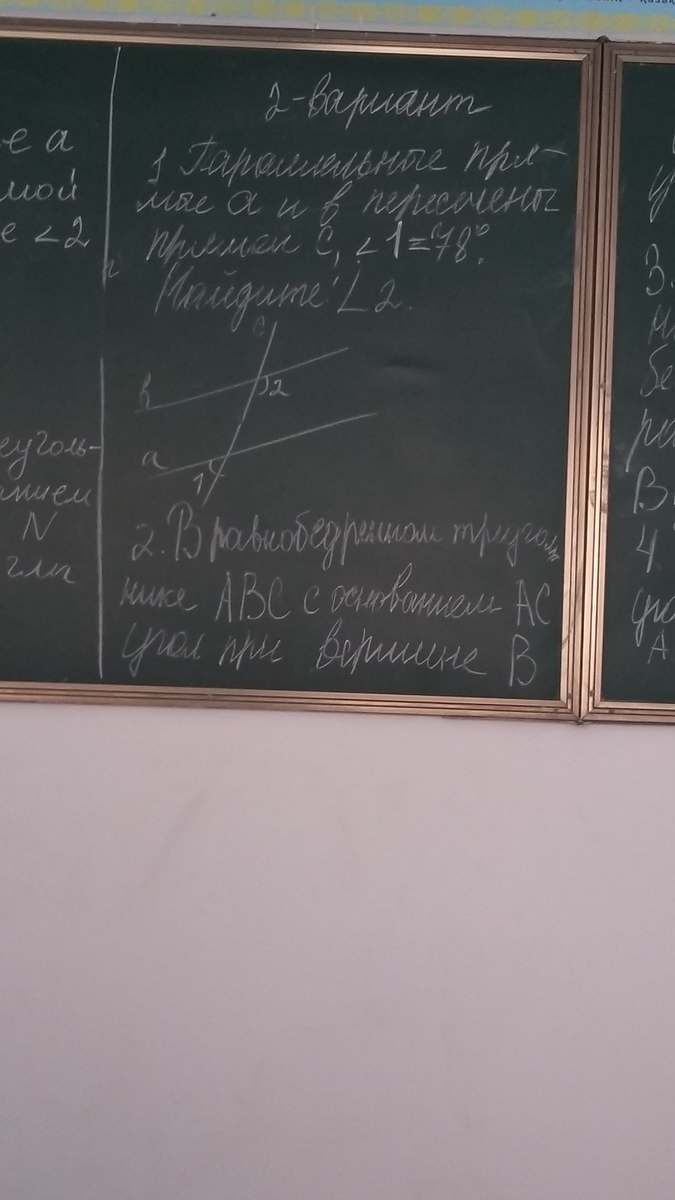 е а
мой
е ∠2
еуголь-
анием
N
гла
2-вариант
1 Параллельные пря-
мые а и в пересечены
прямой с, ∠1=78°.
Найдите ∠2.
с
в
2
а
1
2. В равнобедренном треуголь
нике ABC с основанием AC
угол при вершине B
3.
В
4
A